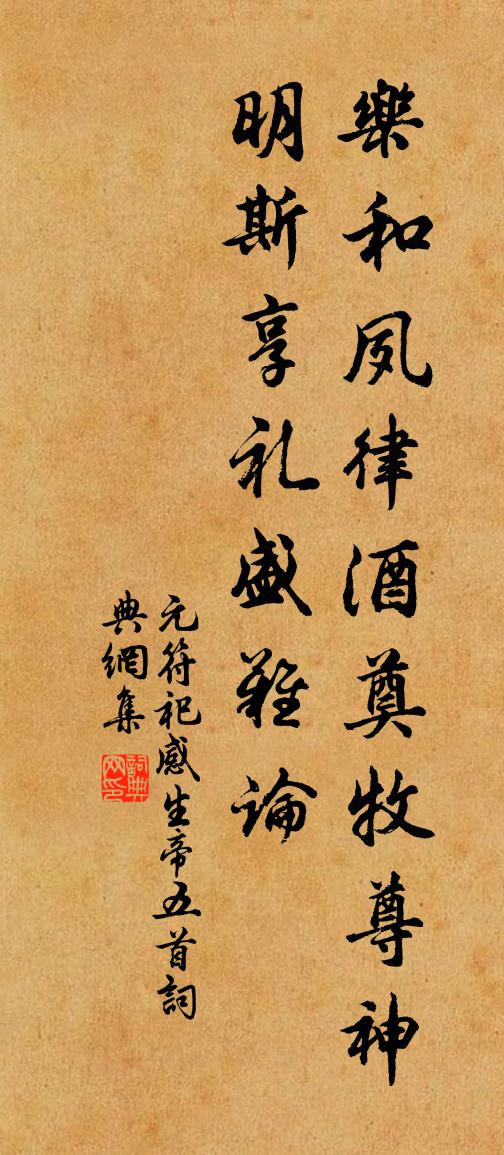 樂和夙律酒奠牧尊神
明斯享礼盛難論
元符祀感生帝五首詞
典網集
詞典
网印